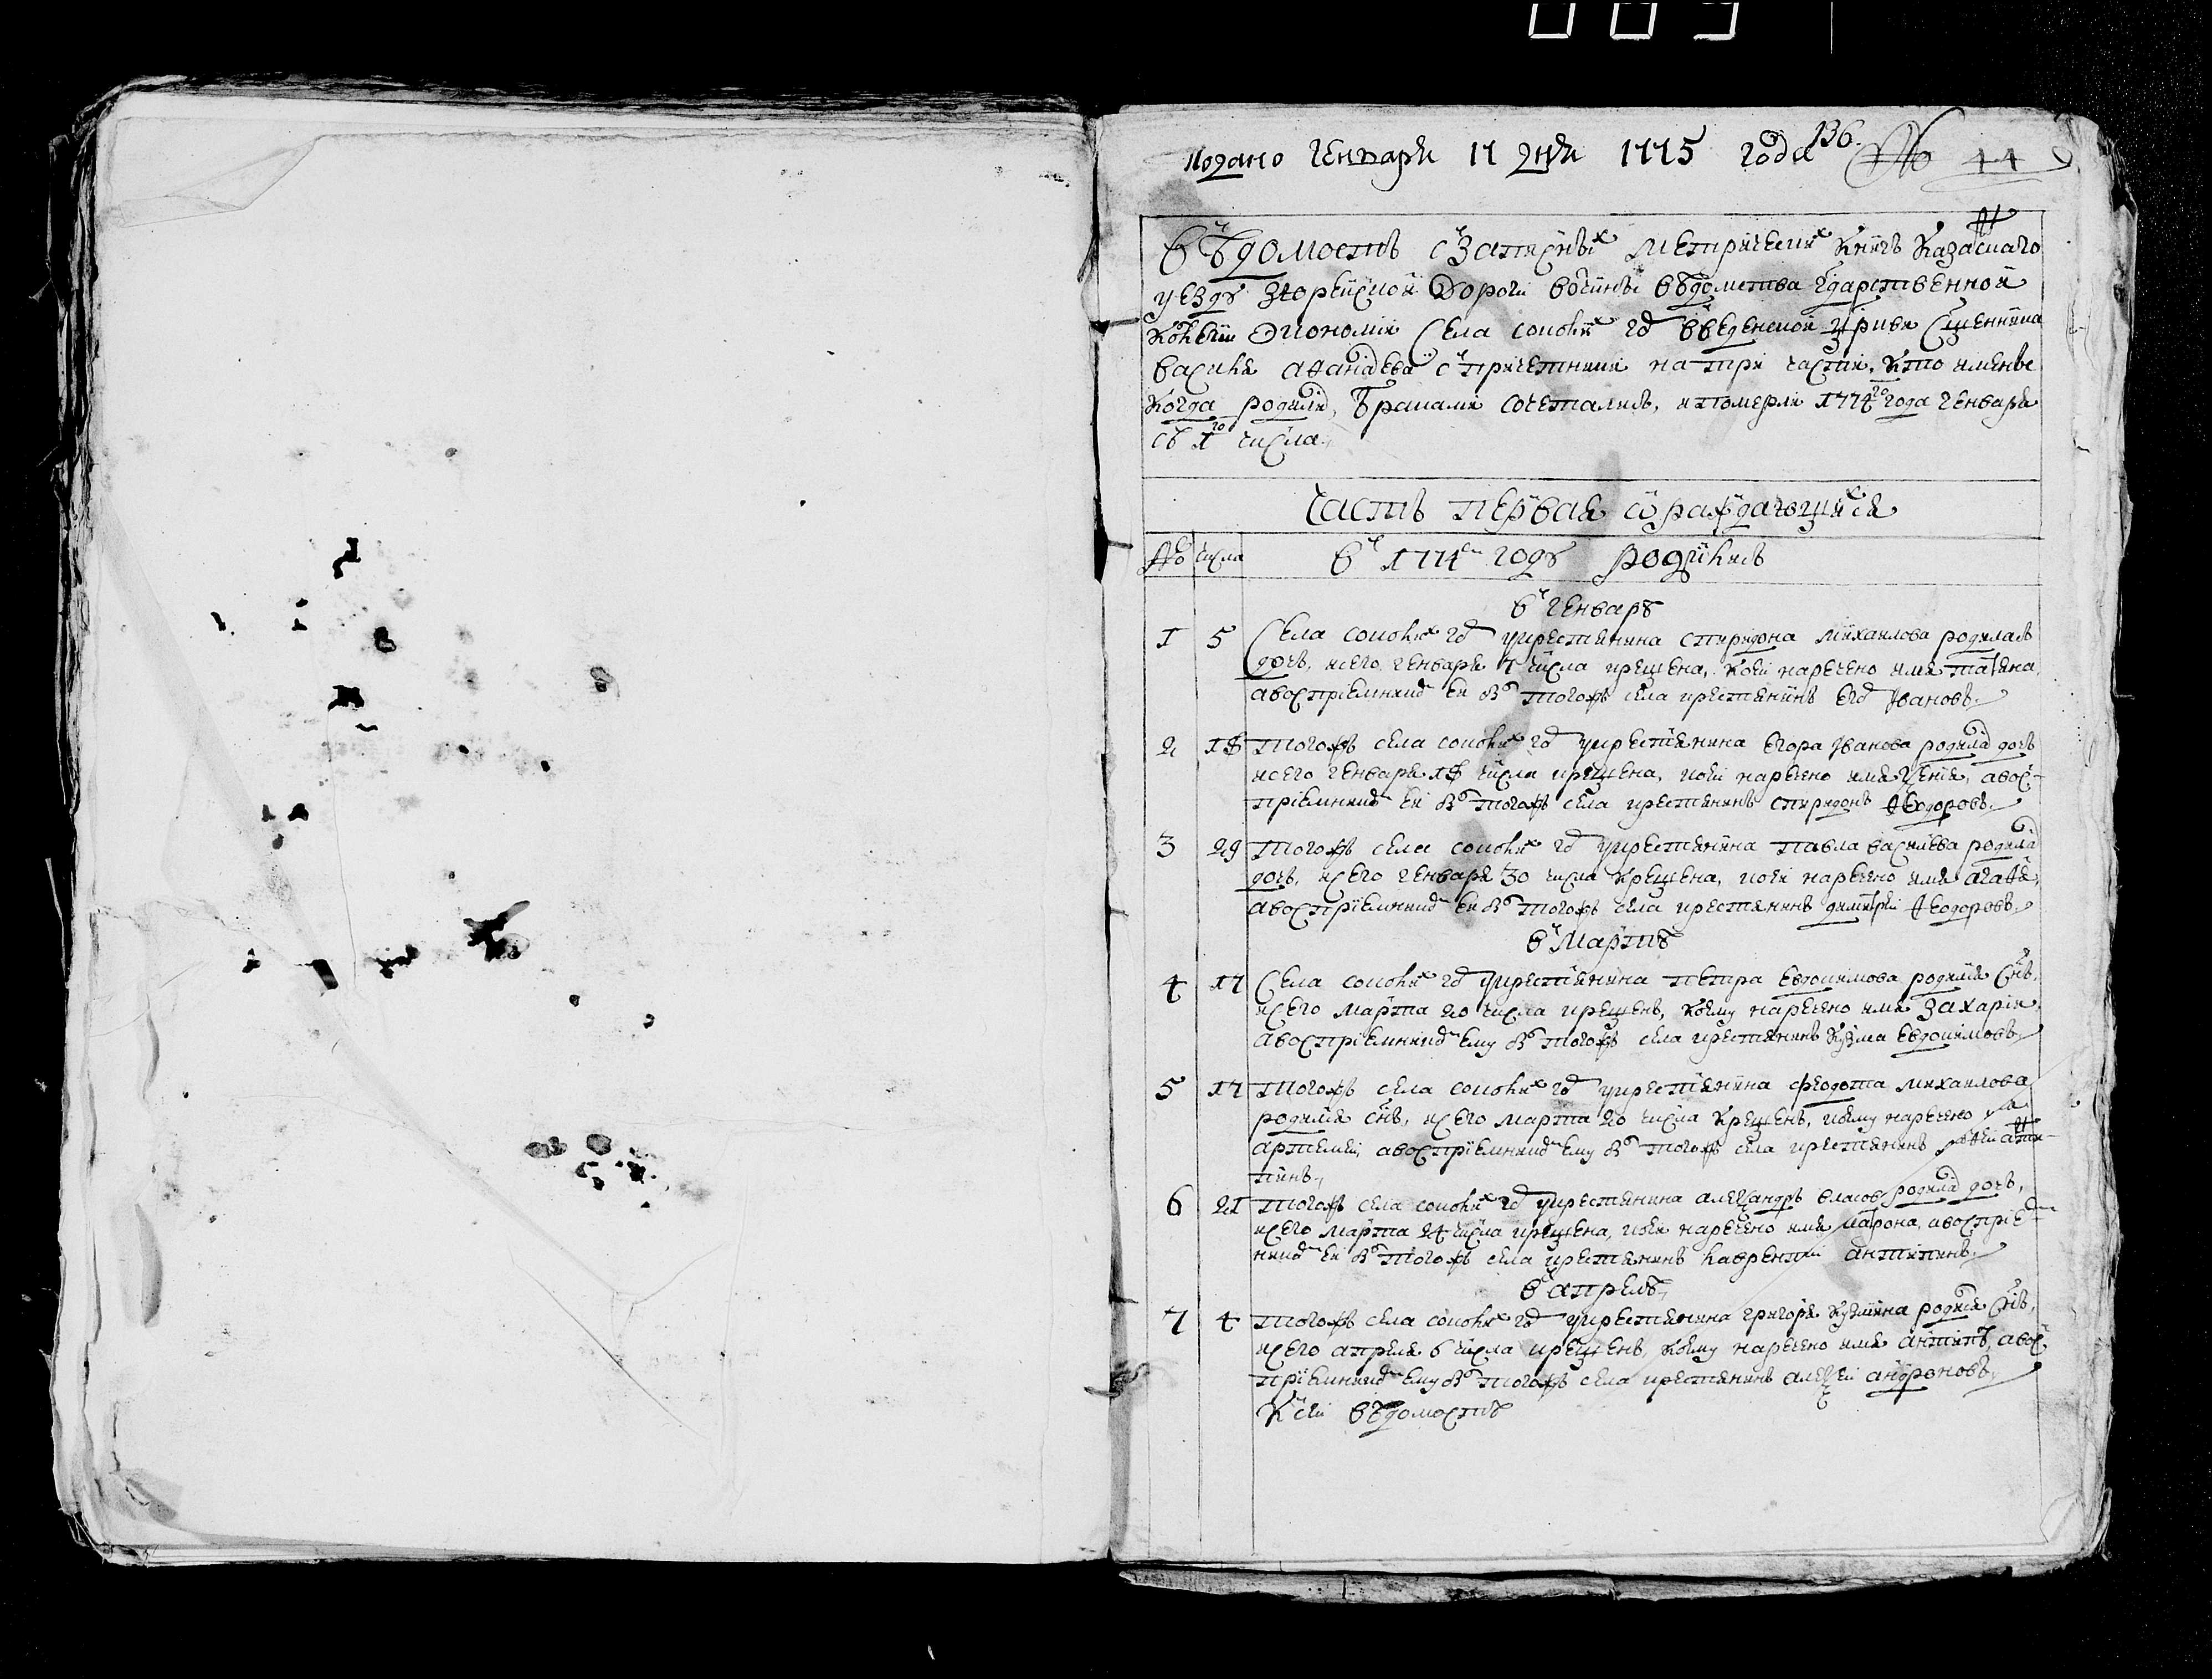 подано генваря 17 дня 1775 года 136. № 44
Вѣдомость с записныхъ метрическихъ книгъ Казанскаго
уезду Зюрейской дороги вотчины вѣдомства Гдарственной
Колегии Економии Села Соколихъ горъ Введенской цркви Сщенника
Василья Афанасьева с причетники на три части, кто имянно
когда родились, браками сочетались, и померли 1774го года генваря
съ 1го числа.
Часть первая о раждающихся
№ числа В 1774м году родились
в генварѣ
1 5 Села Соколихъ горъ у крестьянина Спиридона Михаилова родилась
дочь, и сего генваря 7 числа крещена, коей наречено имя Татьяна,
а восприемникомъ ей былъ тогожъ села крестьянинъ Егоръ Ивановъ.
2 18 тогожъ села Соколихъ горъ у крестьянина Егора Иванова родилась дочь
и сего генваря 18 числа крещена, коей наречено имя Ксения, а вос-
приемникомъ ей былъ тогожъ села крестьянинъ Спиридонъ Феодоровъ.
3 29 тогожъ села Соколихъ горъ у крестьянина Павла Васильева родилась
дочь, и сего генваря 30 числа крещена, коей наречено имя Агафья,
а восприемникомъ ей былъ тогожъ села крестьянинъ Димитрей Феодоровъ.
в Мартѣ
4 17 Села Соколихъ горъ у крестьянина Петра Евдокимова родился снъ,
и сего марта 20 числа крещенъ, коему наречено имя Захария,
а восприемникомъ ему былъ тогожъ села крестьянинъ Кузма Евдокимовъ
5 17 тогожъ села Соколихъ горъ у крестьянина Феодота Михаилова
родился снъ, и сего марта 20 числа крещенъ, коему наречено имя
Артемей, а восприемникомъ ему былъ тогожъ села крестьянинъ Анти-
пинъ,
6 21 тогожъ села Соколихъ горъ у крестьянина Александръ Власов родилась дочь,
и сего марта 24 числа крещена, коей наречено имя Матрона, а восприем-
никомъ ей былъ тогожъ села крестьянинъ Лаврентий Антипинъ.
в апрелѣ,
7 4 тогожъ села Соколихъ горъ у крестьянина Григорья Кузмина родился снъ,
и сего апреля 6 числа крещенъ, коему наречено имя Антипъ, а вос-
приемникомъ ему былъ тогожъ села крестьянинъ Алексей Андроновъ,
К сей вѣдомостѣ